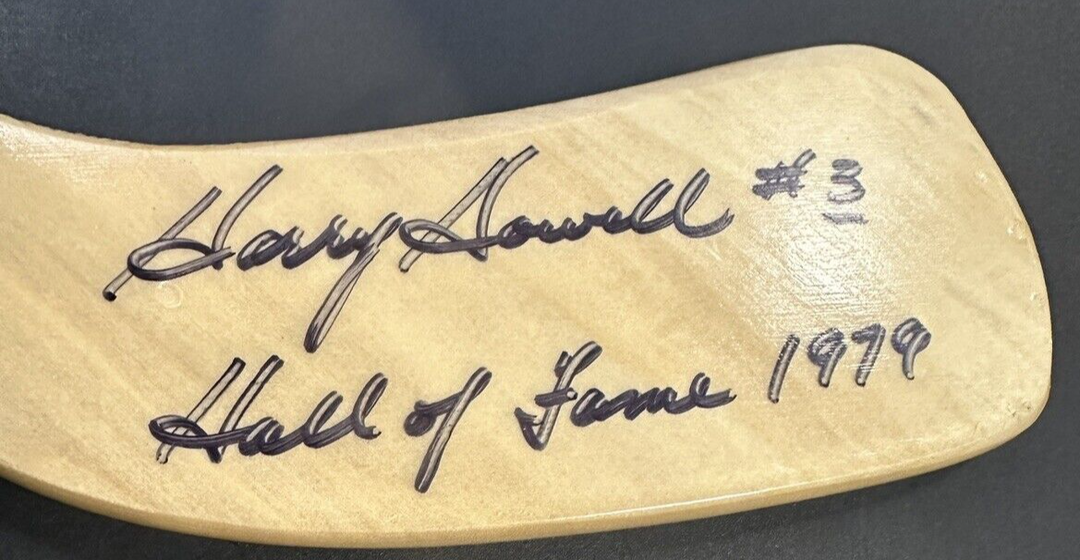 Harry Howell #3
Hall of Fame 1979